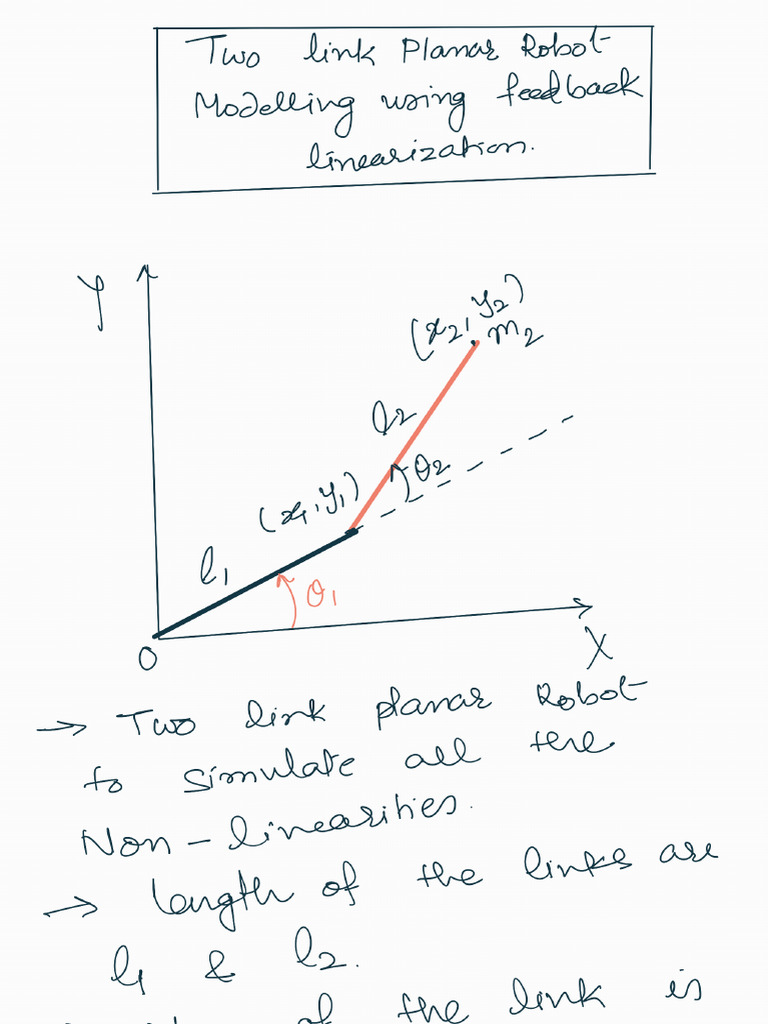 Two link Planar Robot
Modelling using feedback
linearization.
Y
(x2, y2)
m2
l2
θ2
(x1, y1)
l1
θ1
O
X
→ Two link planar Robot
to simulate all the
Non-linearities.
→ Length of the links are
l1 & l2.
of the link is